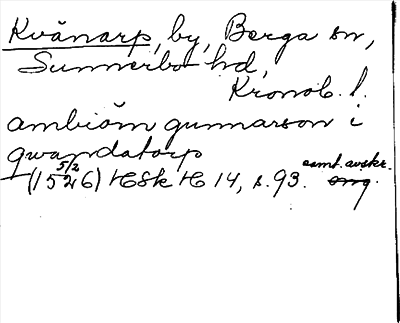 Kvänarp, by, Berga sn,
Sunnerbo hd,
Kronob. l.
ambiörn gunnarson i
qwandatorp
5/2
(1526) HSk H 14, s. 93. samt. avskr.